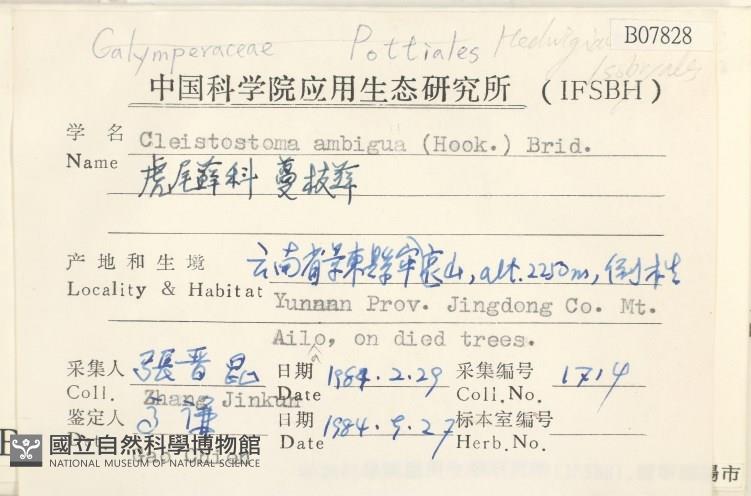 B07828
Calymperaceae Pottiales
中国科学院应用生态研究所 (IFSBH)
学名 Cleistostoma ambigua (Hook.) Brid.
Name 虎尾藓科 蔓枝藓
产地和生境 云南省景東縣 哀山, alt. 2250m, 倒木
Locality & Habitat Yunnan Prov. Jingdong Co. Mt.
Ailo, on died trees.
采集人 張晋昆 日期 1984.2.29 采集编号 1714
Coll. Zhang Jinkun Date Coll.No.
鉴定人 高谦 日期 1984.9.27 标本室编号
Det. Gao Chian Date Herb.No.
國立自然科學博物館
NATIONAL MUSEUM OF NATURAL SCIENCE